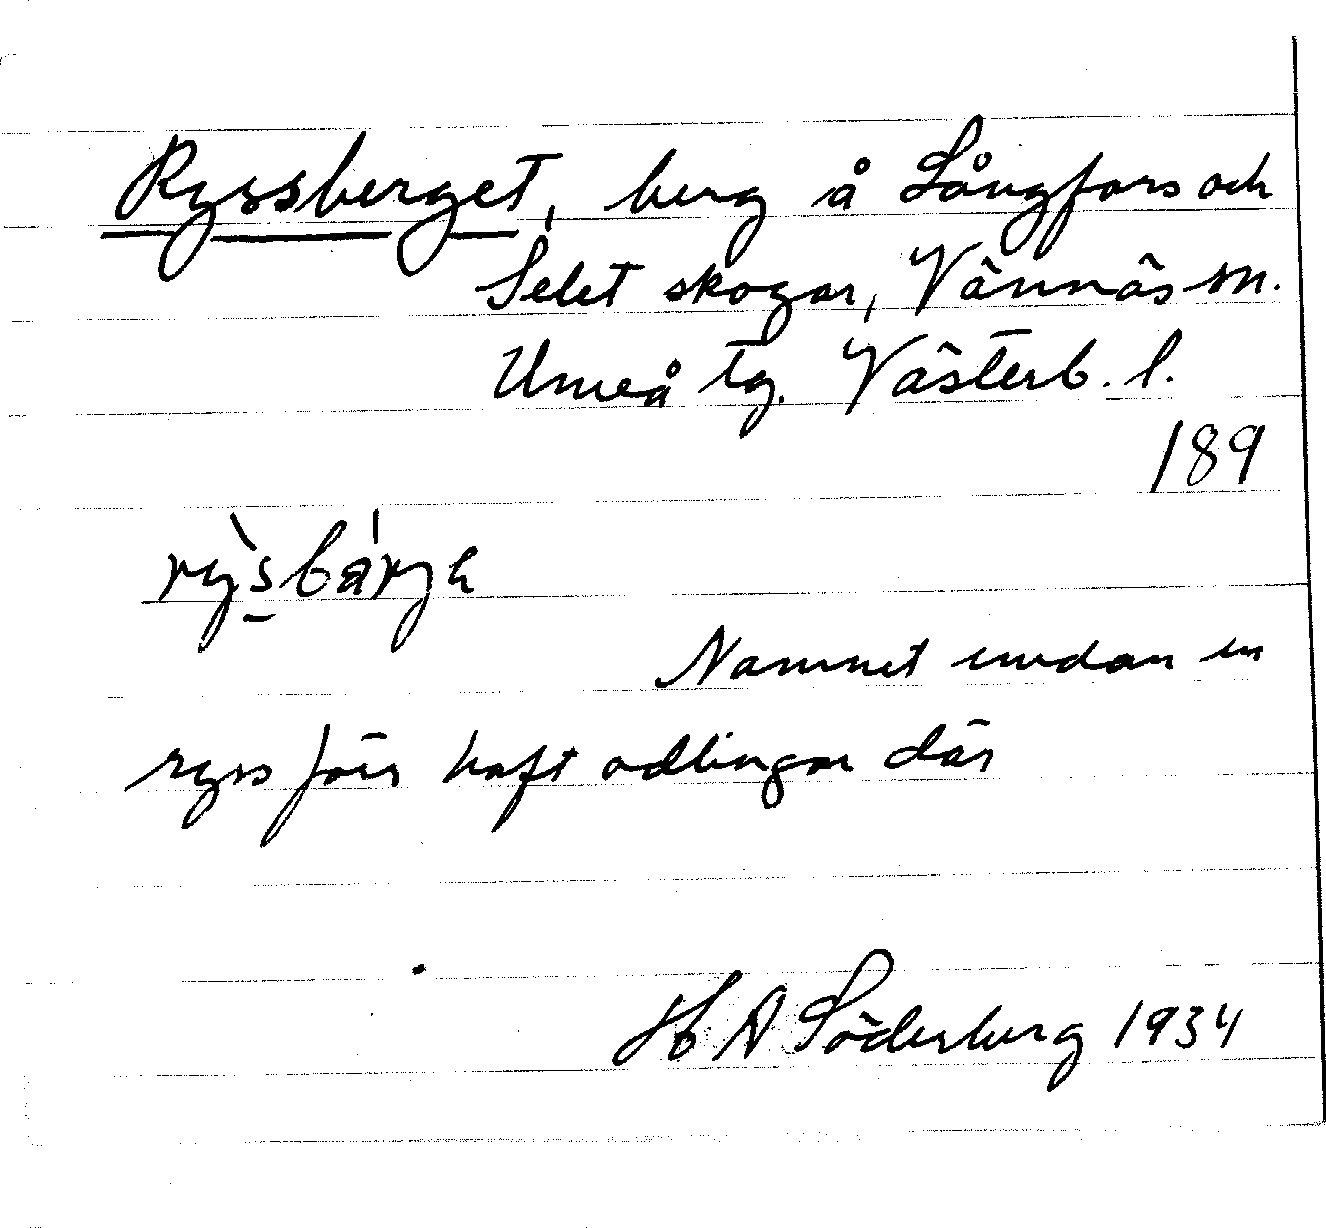 Ryssberget, berg å Långfors och
Selet skogar, Vännäs sn.
Umeå tg. Västerb. l.
189
rỳsbárjə
Namnet emedan en
ryss förr haft odlingar där
H A Söderberg 1934